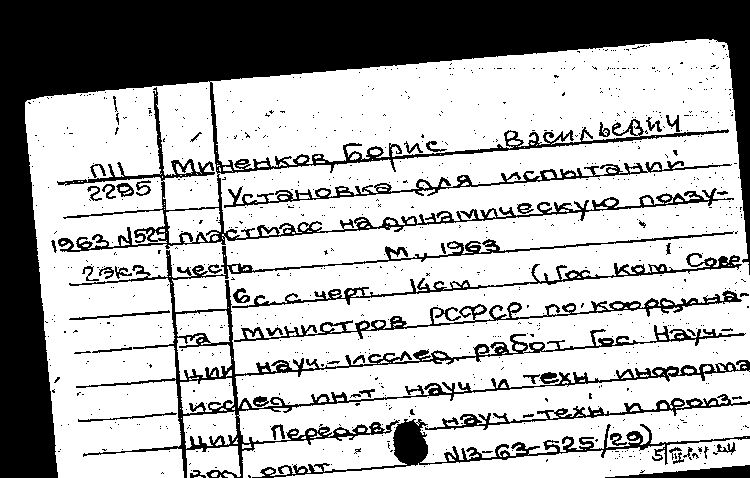 П11 Миненков, Борис Васильевич
2295 Установка для испытаний
1963 N525 пластмасс на динамическую ползу-
2экз. честь М., 1963
6с. с черт. 14см. (Гос. Ком. Сове-
та министров РСФСР по координа-
ции науч.-исслед. работ. Гос. Науч.-
исслед. ин-т науч. и техн. информа
ции, Передов науч.-техн. и произ-
вод. опыт N13-63-525/29)